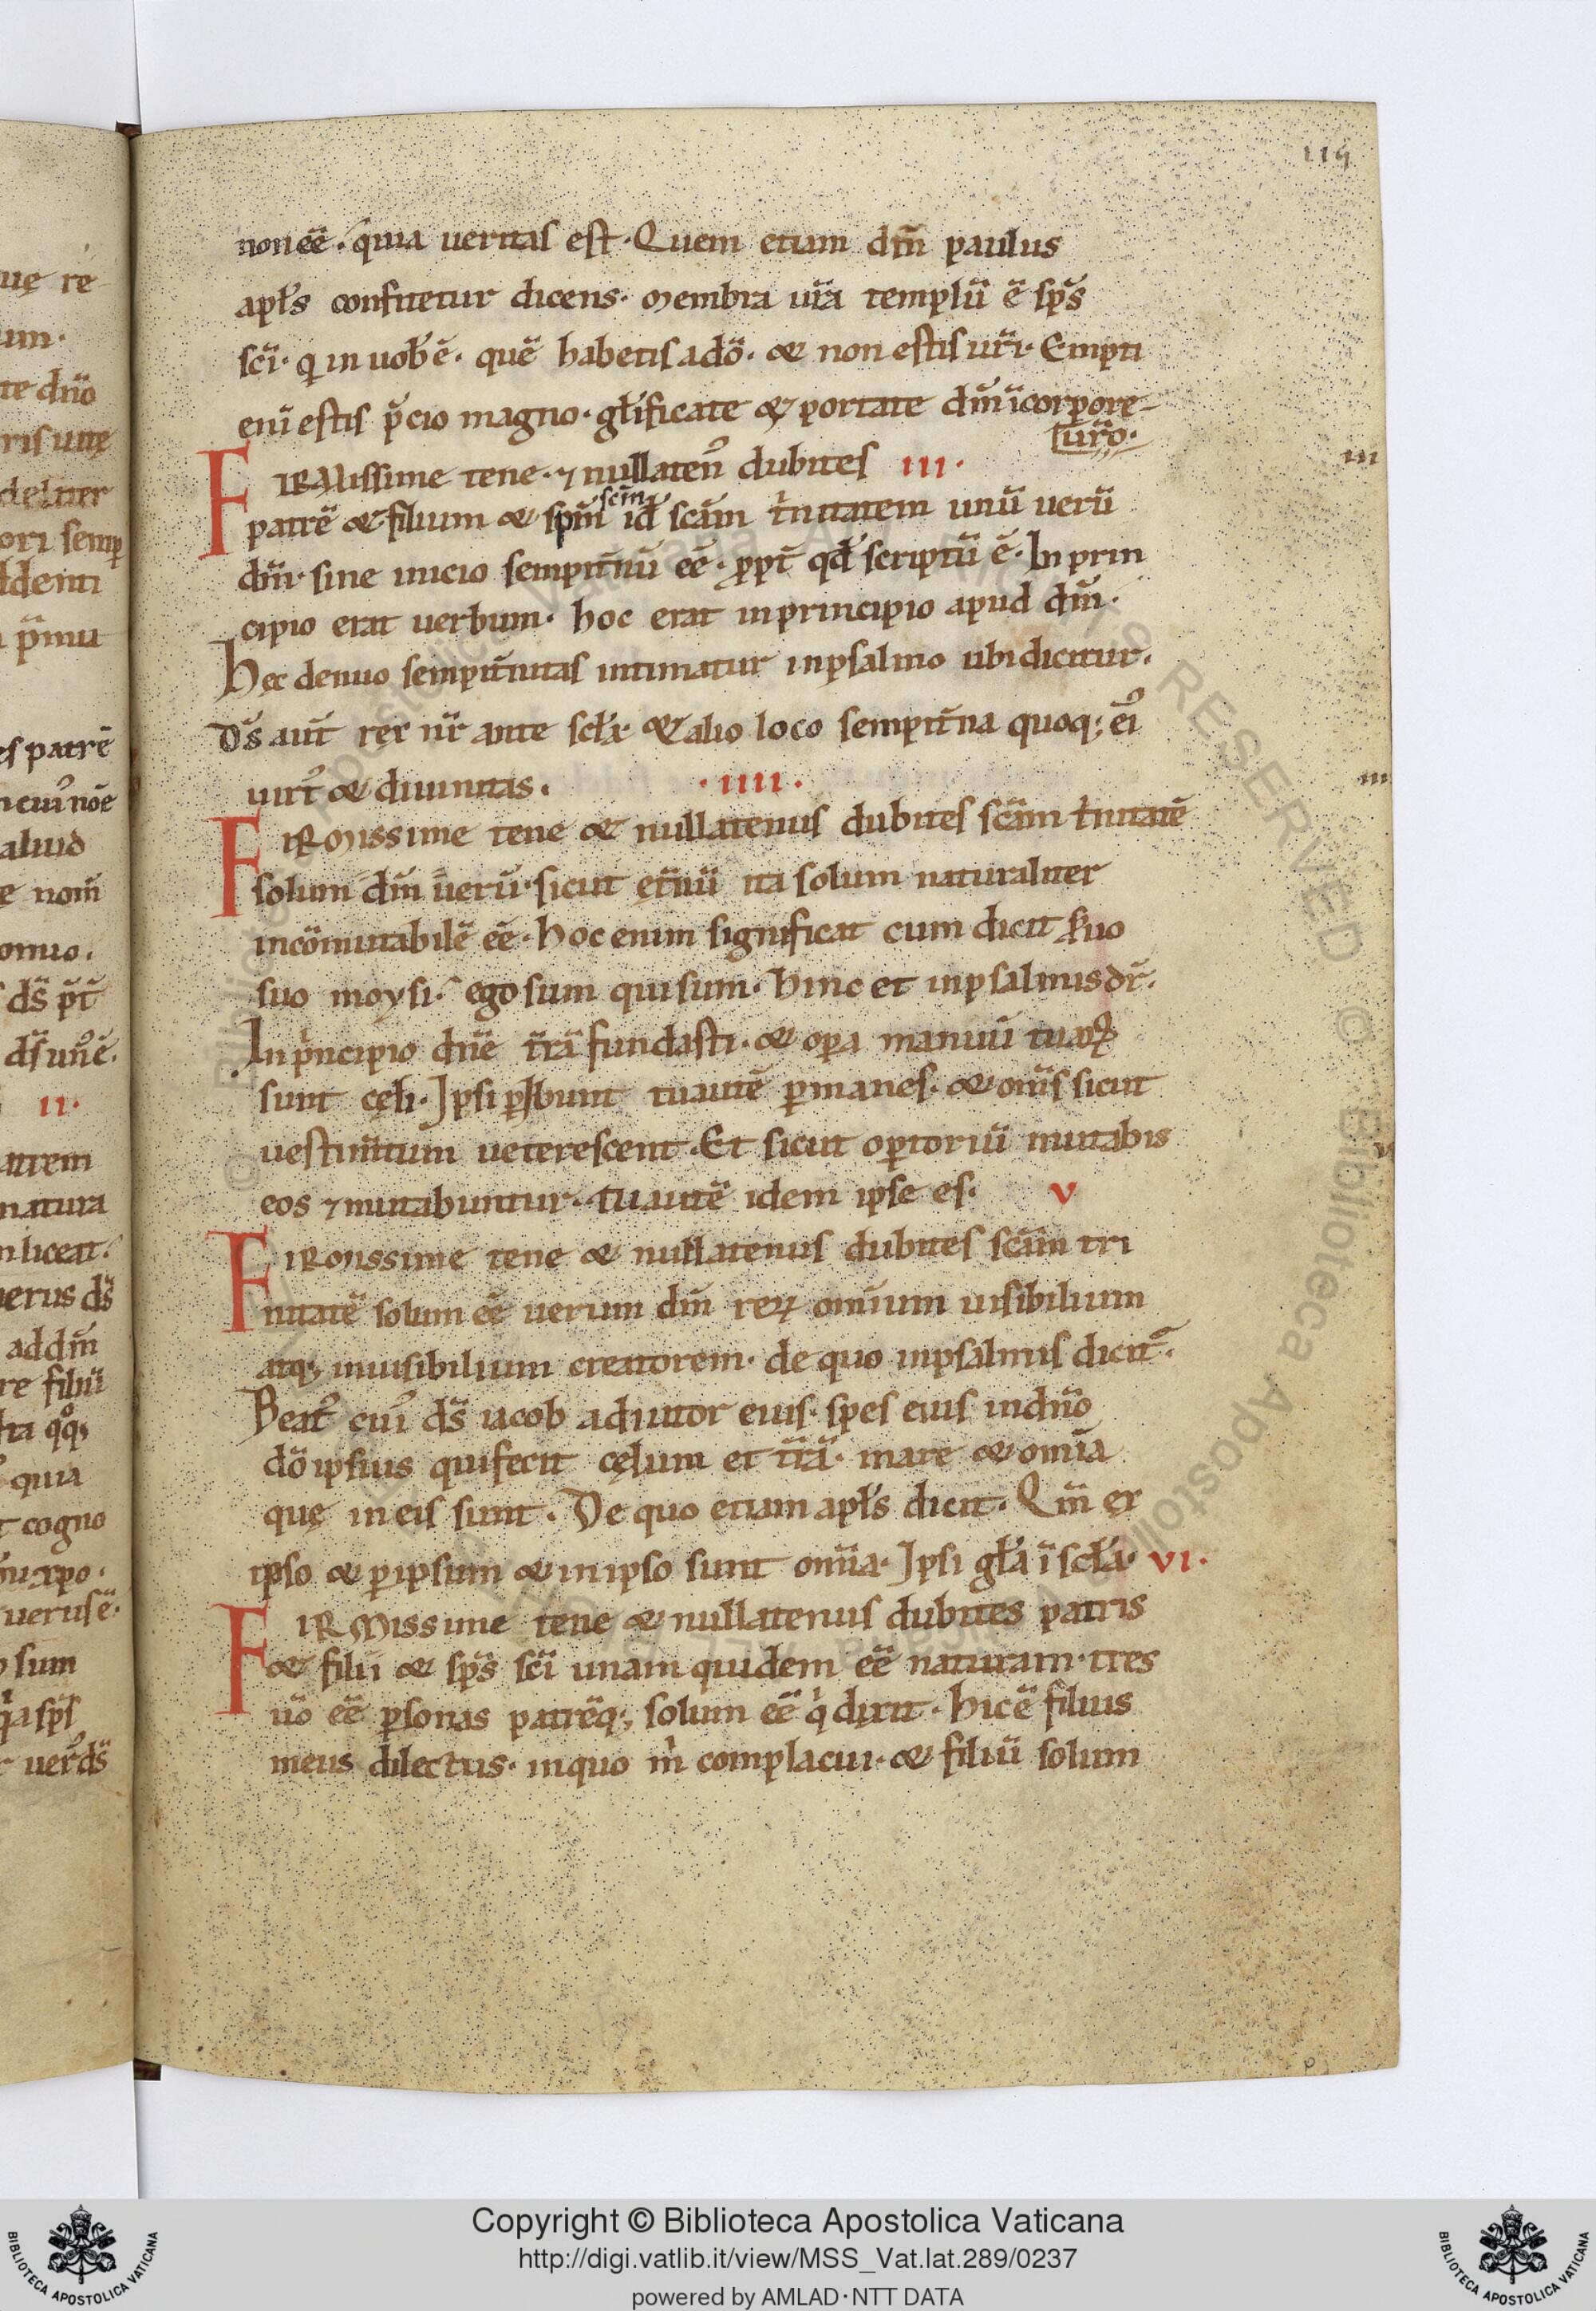 115
non eē· quia ueritas est· Quem etiam dm̄ paulus
apl̄s confitetur dicens· Membra ur̄a templū ē sp̄s
sc̄i· q in uob ē· quē habetis a dō· & non estis ur̄i· Empti
eni estis p̄cio magno· gl̄ificate & portate dm̄ ī corpore
ur̄o·
FIRMissime tene· ⁊ nullaten᾽ dubites III·
patrē & filium & sp̄m sc̄m id̄ sc̄am t̄nitatem unū uerū
dm̄· sine inicio sempit̄nū eē· ꝓpt̄ qd̄ scriptū ē· In prin
cipio erat uerbum· hoc erat in principio apud dm̄·
Hęc denuo sempit̄nitas intimatur in psalmo ubi dicitur·
Ds̄ aut̄ rex nr̄ ante scl̄a· & alio loco sempit̄na quoq; ei᾽
uirt᾽ & diuinitas· ·IIII·
FIRMissime tene & nullatenus dubites sc̄am t̄nitatē
solum dm̄ uerū· sicut ęt̄nū ita solum naturaliter
incōmutabilē eē· hoc enim significat cum dicit s̄uo
suo moysi· ego sum qui sum· Hinc et in psalmis dr̄·
In p̄ncipio dn̄e t̄rā fundasti· & opa manuū tuaꝝ
sunt cęli· Ipsi ꝑibunt tu autē ꝑmanes· & om̄s sicut
uestim̄tum ueterescent· Et sicut optoriū mutabis
eos ⁊ mutabuntur· tu autē idem ipse es· V
FIRMissime tene & nullatenus dubites sc̄am tri
nitatē solum eē uerum dm̄ reꝝ omīum uisibilium
atq; inuisibilium creatorem· de quo in psalmis dicit᾽·
Beat᾽ cui᾽ ds̄ iacob adiutor eius· spes eius in dn̄o
dō ipsius qui fecit cęlum et t̄rā· mare & omīa
quę in eis sunt· De quo etiam apl̄s dicit· Qm̄ ex
ipso & ꝑ ipsum & in ipso sunt om̄ia· Ipsi gl̄a ī scl̄a· VI·
FIRMissime tene & nullatenus dubites patris
& filii & sp̄s sc̄i unam quidem eē naturam· tres
ūo eē ꝑsonas patrēq; solum eē q̇ dixit· hic ē filius
meus dilectus· in quo ṁ complacui· & filiū solum
Copyright © Biblioteca Apostolica Vaticana
http://digi.vatlib.it/view/MSS_Vat.lat.289/0237
powered by AMLAD·NTT DATA
BIBLIOTECA APOSTOLICA VATICANA
BIBLIOTECA APOSTOLICA VATICANA